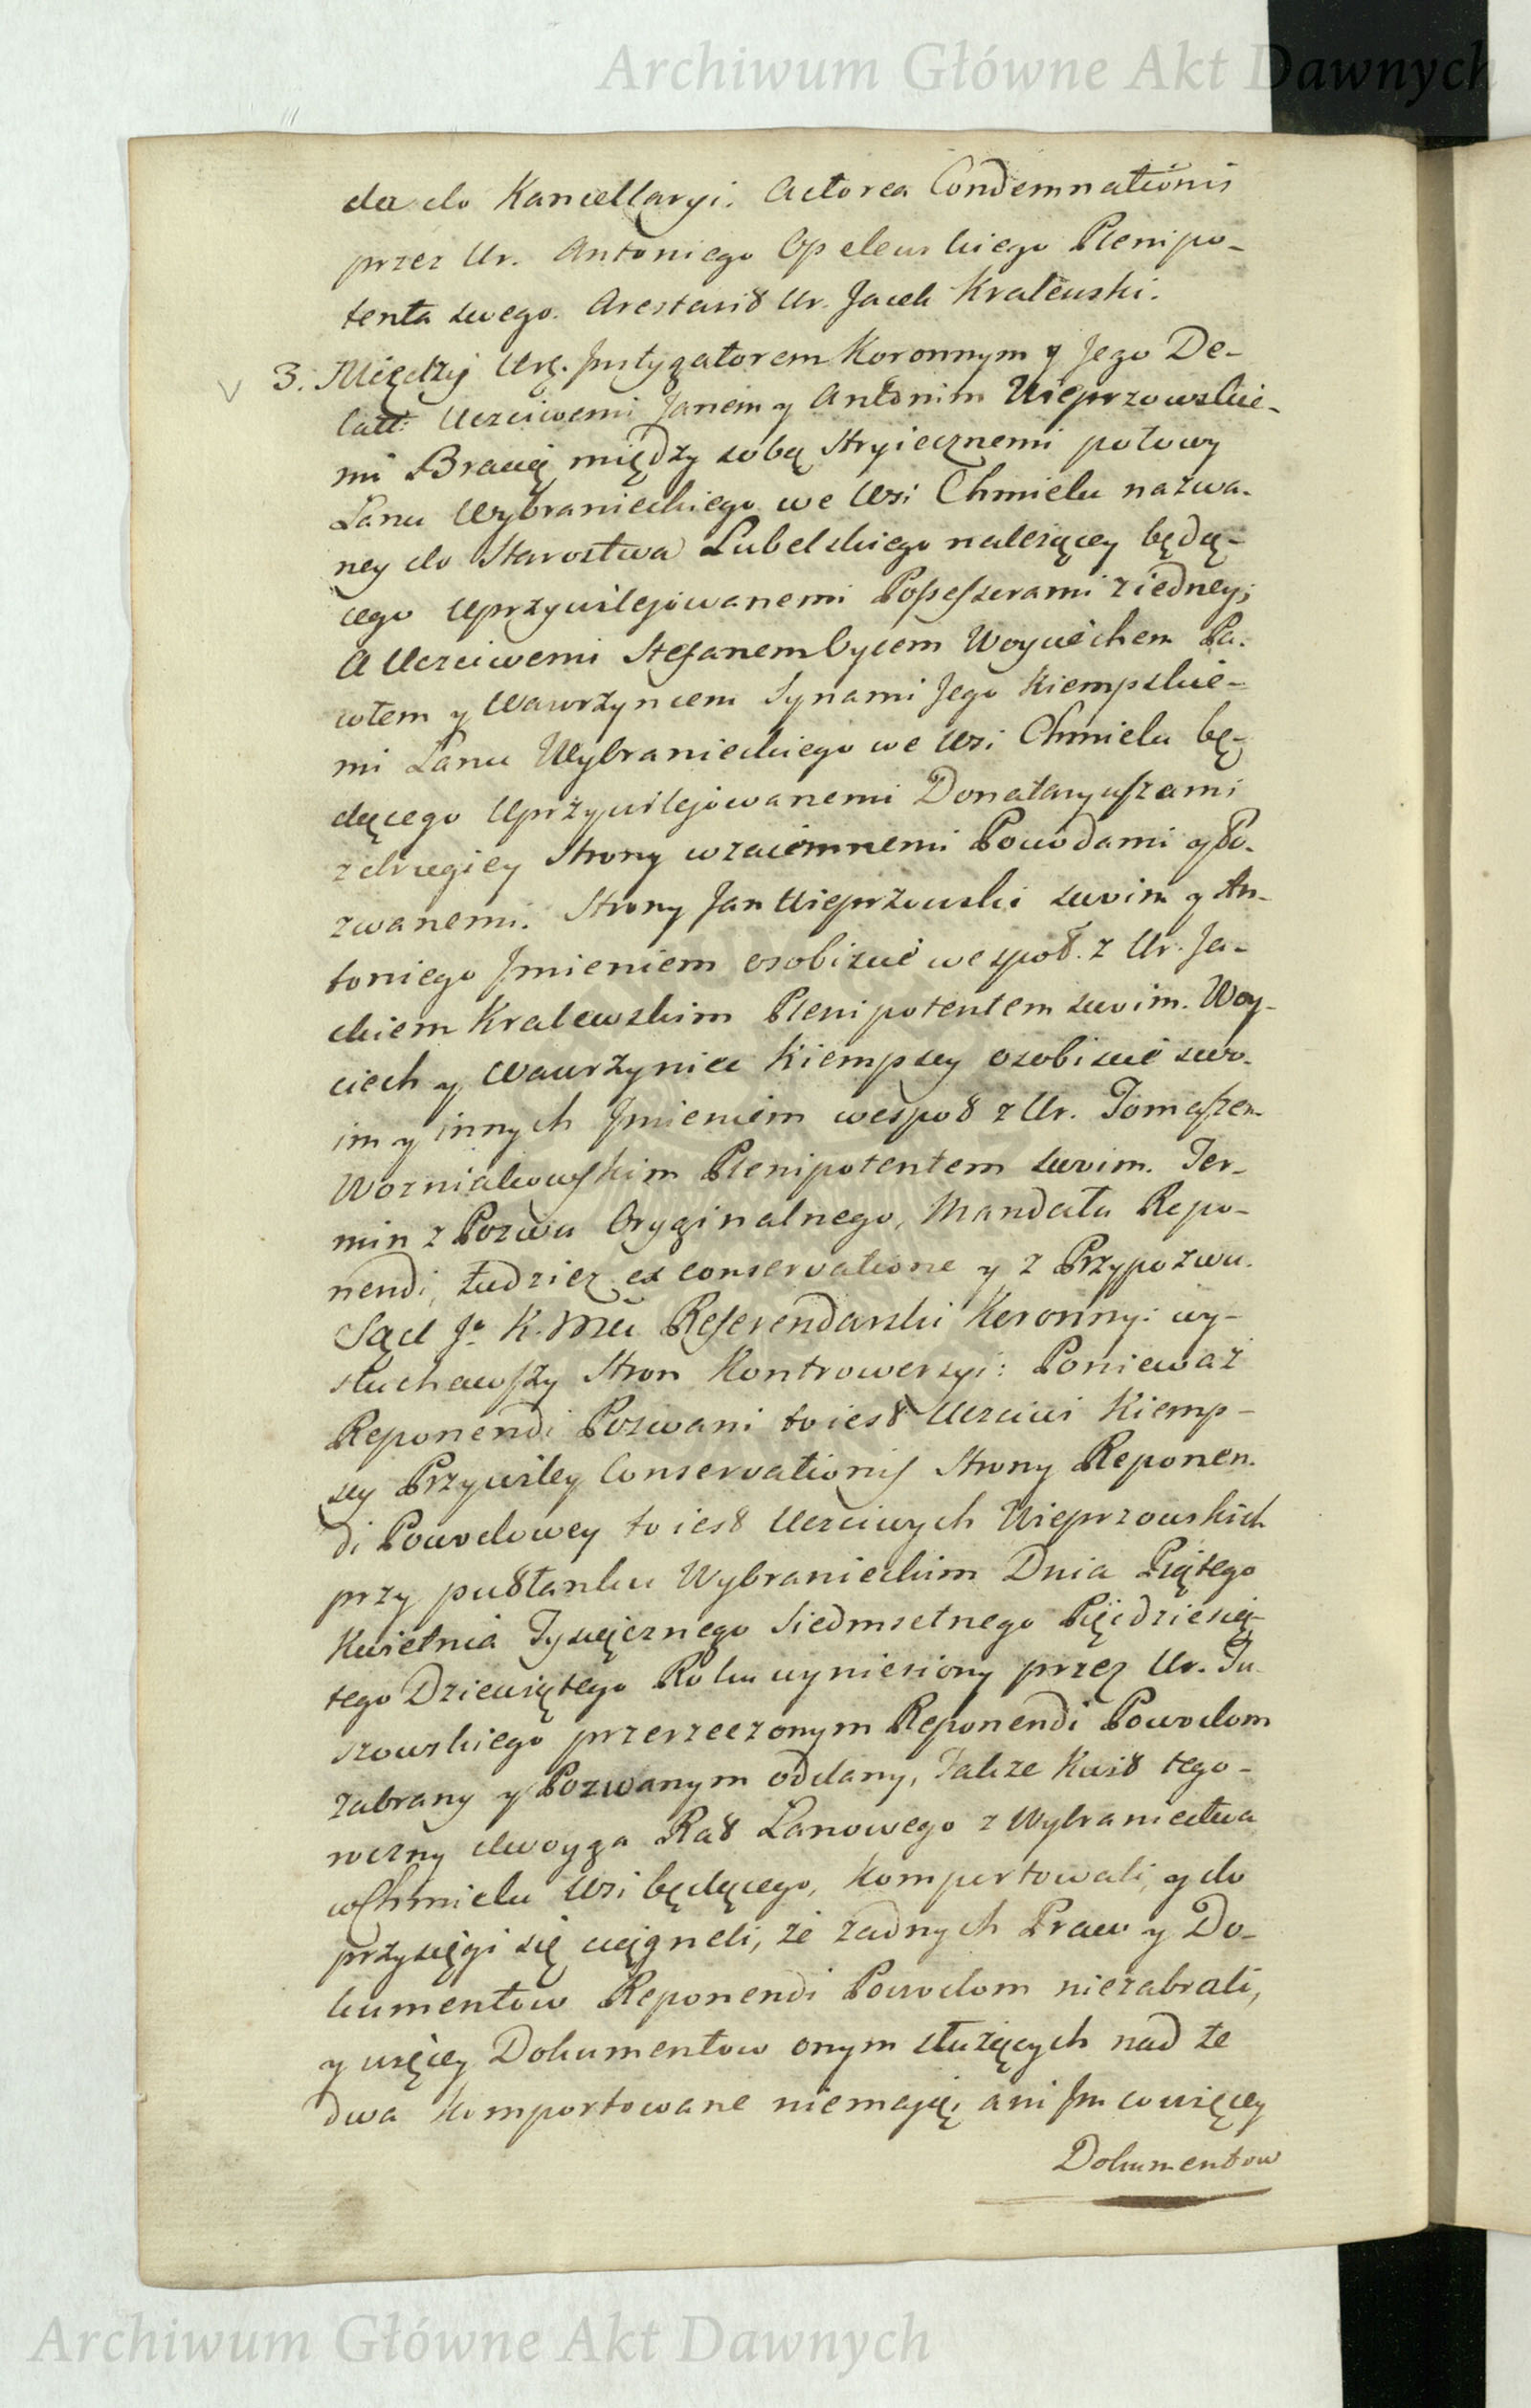 Archiwum Główne Akt Dawnych
da do Kancellaryi. Actorea Condemnationis
przez Ur. Antoniego Opelewskiego Plenipo-
tenta swego. Arestavit Ur. Jacek Kralewski.
3. Między Urę. Instygatorem Koronnym y Jego De-
latt: Uczciwemi Janem y Antonim Wieprzowskie-
mi Bracią między sobą Stryiecznemi połowy
Łanu Wybranieckiego we Wsi Chmielu nazwa-
ney do Starostwa Lubelskiego należącey będą-
cego Uprzywilejowanemi Possessorami z iedney;
A Uczciwemi Stefanem Oycem Woyciechem Pa-
włem y Wawrzyncem Synami Jego Kiempskie-
mi Łanu Wybranieckiego we Wsi Chmielu bę-
dącego Uprzywilejowanemi Donataryuszami
z drugiey Strony wzaiemnemi Powodami y Po-
zwanemi. Strony Jan Wieprzowski swoim y An-
toniego Jmieniem osobiście wespoł z Ur. Ja-
ckiem Kralewskim Plenipotentem swoim. Woy-
ciech y Wawrzyniec Kiempscy osobiście swo-
im y innych Jmieniem wespoł z Ur. Tomaszem
Wozniakowskim Plenipotentem swoim. Ter-
min z Pozwu Oryginalnego, Mandatu Repo-
nendi, tudziez ex conservatione y z Przypozwu.
Sąd Jo K. Mci Referendarski Koronny: wy-
słuchawszy Stron Kontrowersyi: Ponieważ
Reponendi Pozwani to iest Uczciwi Kiemp-
scy Przywiley Conservationis Strony Reponen-
di Powodowey to iest Uczciwych Wieprzowskich
przy pułłanku Wybranieckim Dnia Piątego
Kwietnia Tysiącznego Siedmsetnego Pięćdziesią-
tego Dziewiątego Roku wyniesiony przez Ur. Tu-
szowskiego przerzeczonym Reponendi Powodom
zabrany y Pozwanym oddany, Także Kwit tego-
roczny dwoyga Rat Łanowego z Wybraniectwa
w Chmielu Wsi będącego, Komportowali, y do
przysięgi się ciągneli, że żadnych Praw y Do-
kumentow Reponendi Powodom niezabrali,
y więcey Dokumentow onym służących nad te
dwa Komportowane niemaią, ani Jm co więcey
Dokumentow
Archiwum Główne Akt Dawnych